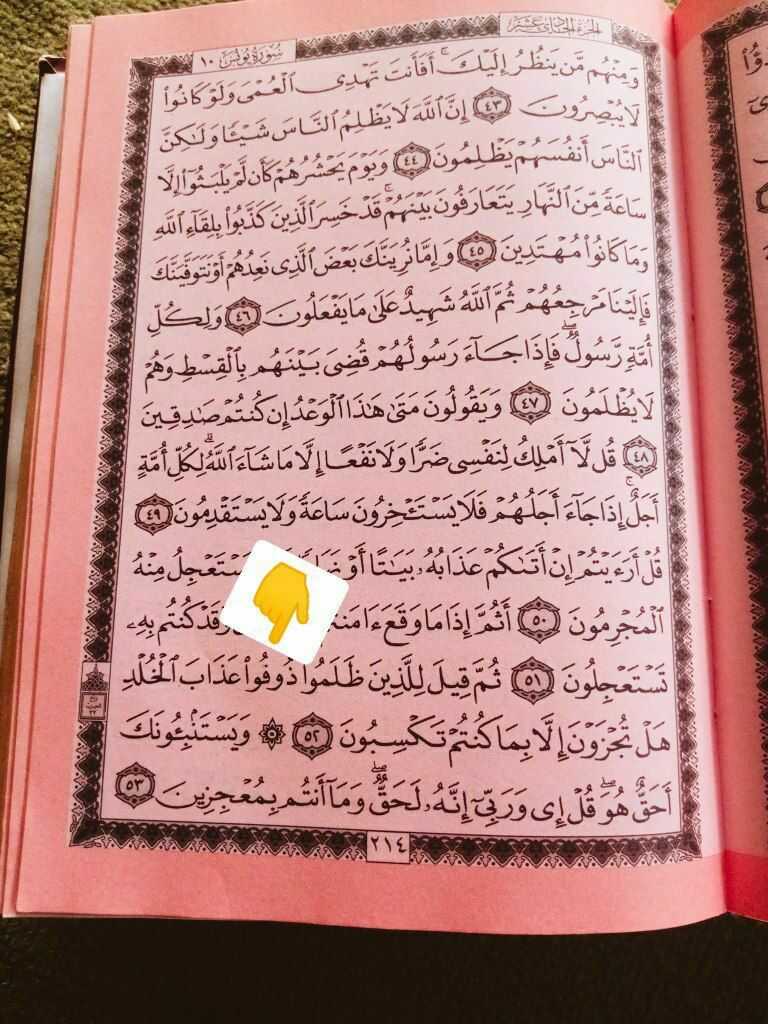 الجزء الحادي عشر
سُورَةُ يُونُسَ ١٠
وَمِنْهُم مَّن يَنظُرُ إِلَيْكَ ۚ أَفَأَنتَ تَهْدِى الْعُمْىَ وَلَوْ كَانُوا
لَا يُبْصِرُونَ ٤٣ إِنَّ اللَّهَ لَا يَظْلِمُ النَّاسَ شَيْـًٔا وَلَٰكِنَّ
النَّاسَ أَنفُسَهُمْ يَظْلِمُونَ ٤٤ وَيَوْمَ يَحْشُرُهُمْ كَأَن لَّمْ يَلْبَثُوا إِلَّا
سَاعَةً مِّنَ النَّهَارِ يَتَعَارَفُونَ بَيْنَهُمْ ۚ قَدْ خَسِرَ الَّذِينَ كَذَّبُوا بِلِقَاءِ اللَّهِ
وَمَا كَانُوا مُهْتَدِينَ ٤٥ وَإِمَّا نُرِيَنَّكَ بَعْضَ الَّذِى نَعِدُهُمْ أَوْ نَتَوَفَّيَنَّكَ
فَإِلَيْنَا مَرْجِعُهُمْ ثُمَّ اللَّهُ شَهِيدٌ عَلَىٰ مَا يَفْعَلُونَ ٤٦ وَلِكُلِّ
أُمَّةٍ رَّسُولٌ ۖ فَإِذَا جَاءَ رَسُولُهُمْ قُضِىَ بَيْنَهُم بِالْقِسْطِ وَهُمْ
لَا يُظْلَمُونَ ٤٧ وَيَقُولُونَ مَتَىٰ هَٰذَا الْوَعْدُ إِن كُنتُمْ صَٰدِقِينَ
٤٨ قُل لَّا أَمْلِكُ لِنَفْسِى ضَرًّا وَلَا نَفْعًا إِلَّا مَا شَاءَ اللَّهُ ۗ لِكُلِّ أُمَّةٍ
أَجَلٌ ۚ إِذَا جَاءَ أَجَلُهُمْ فَلَا يَسْتَـْٔخِرُونَ سَاعَةً وَلَا يَسْتَقْدِمُونَ ٤٩
قُلْ أَرَءَيْتُمْ إِنْ أَتَىٰكُمْ عَذَابُهُۥ بَيَٰتًا أَوْ نَهَارًا يَسْتَعْجِلُ مِنْهُ
الْمُجْرِمُونَ ٥٠ أَثُمَّ إِذَا مَا وَقَعَ وَقَدْ كُنتُم بِهِۦ
تَسْتَعْجِلُونَ ٥١ ثُمَّ قِيلَ لِلَّذِينَ ظَلَمُوا ذُوفُوا عَذَابَ الْخُلْدِ
هَلْ تُجْزَوْنَ إِلَّا بِمَا كُنتُمْ تَكْسِبُونَ ٥٢ ۞ وَيَسْتَنۢبِـُٔونَكَ
أَحَقٌّ هُوَ ۖ قُلْ إِى وَرَبِّى إِنَّهُۥ لَحَقٌّ ۖ وَمَا أَنتُم بِمُعْجِزِينَ ٥٣
ربع
الحزب
٢٢
٢١٤